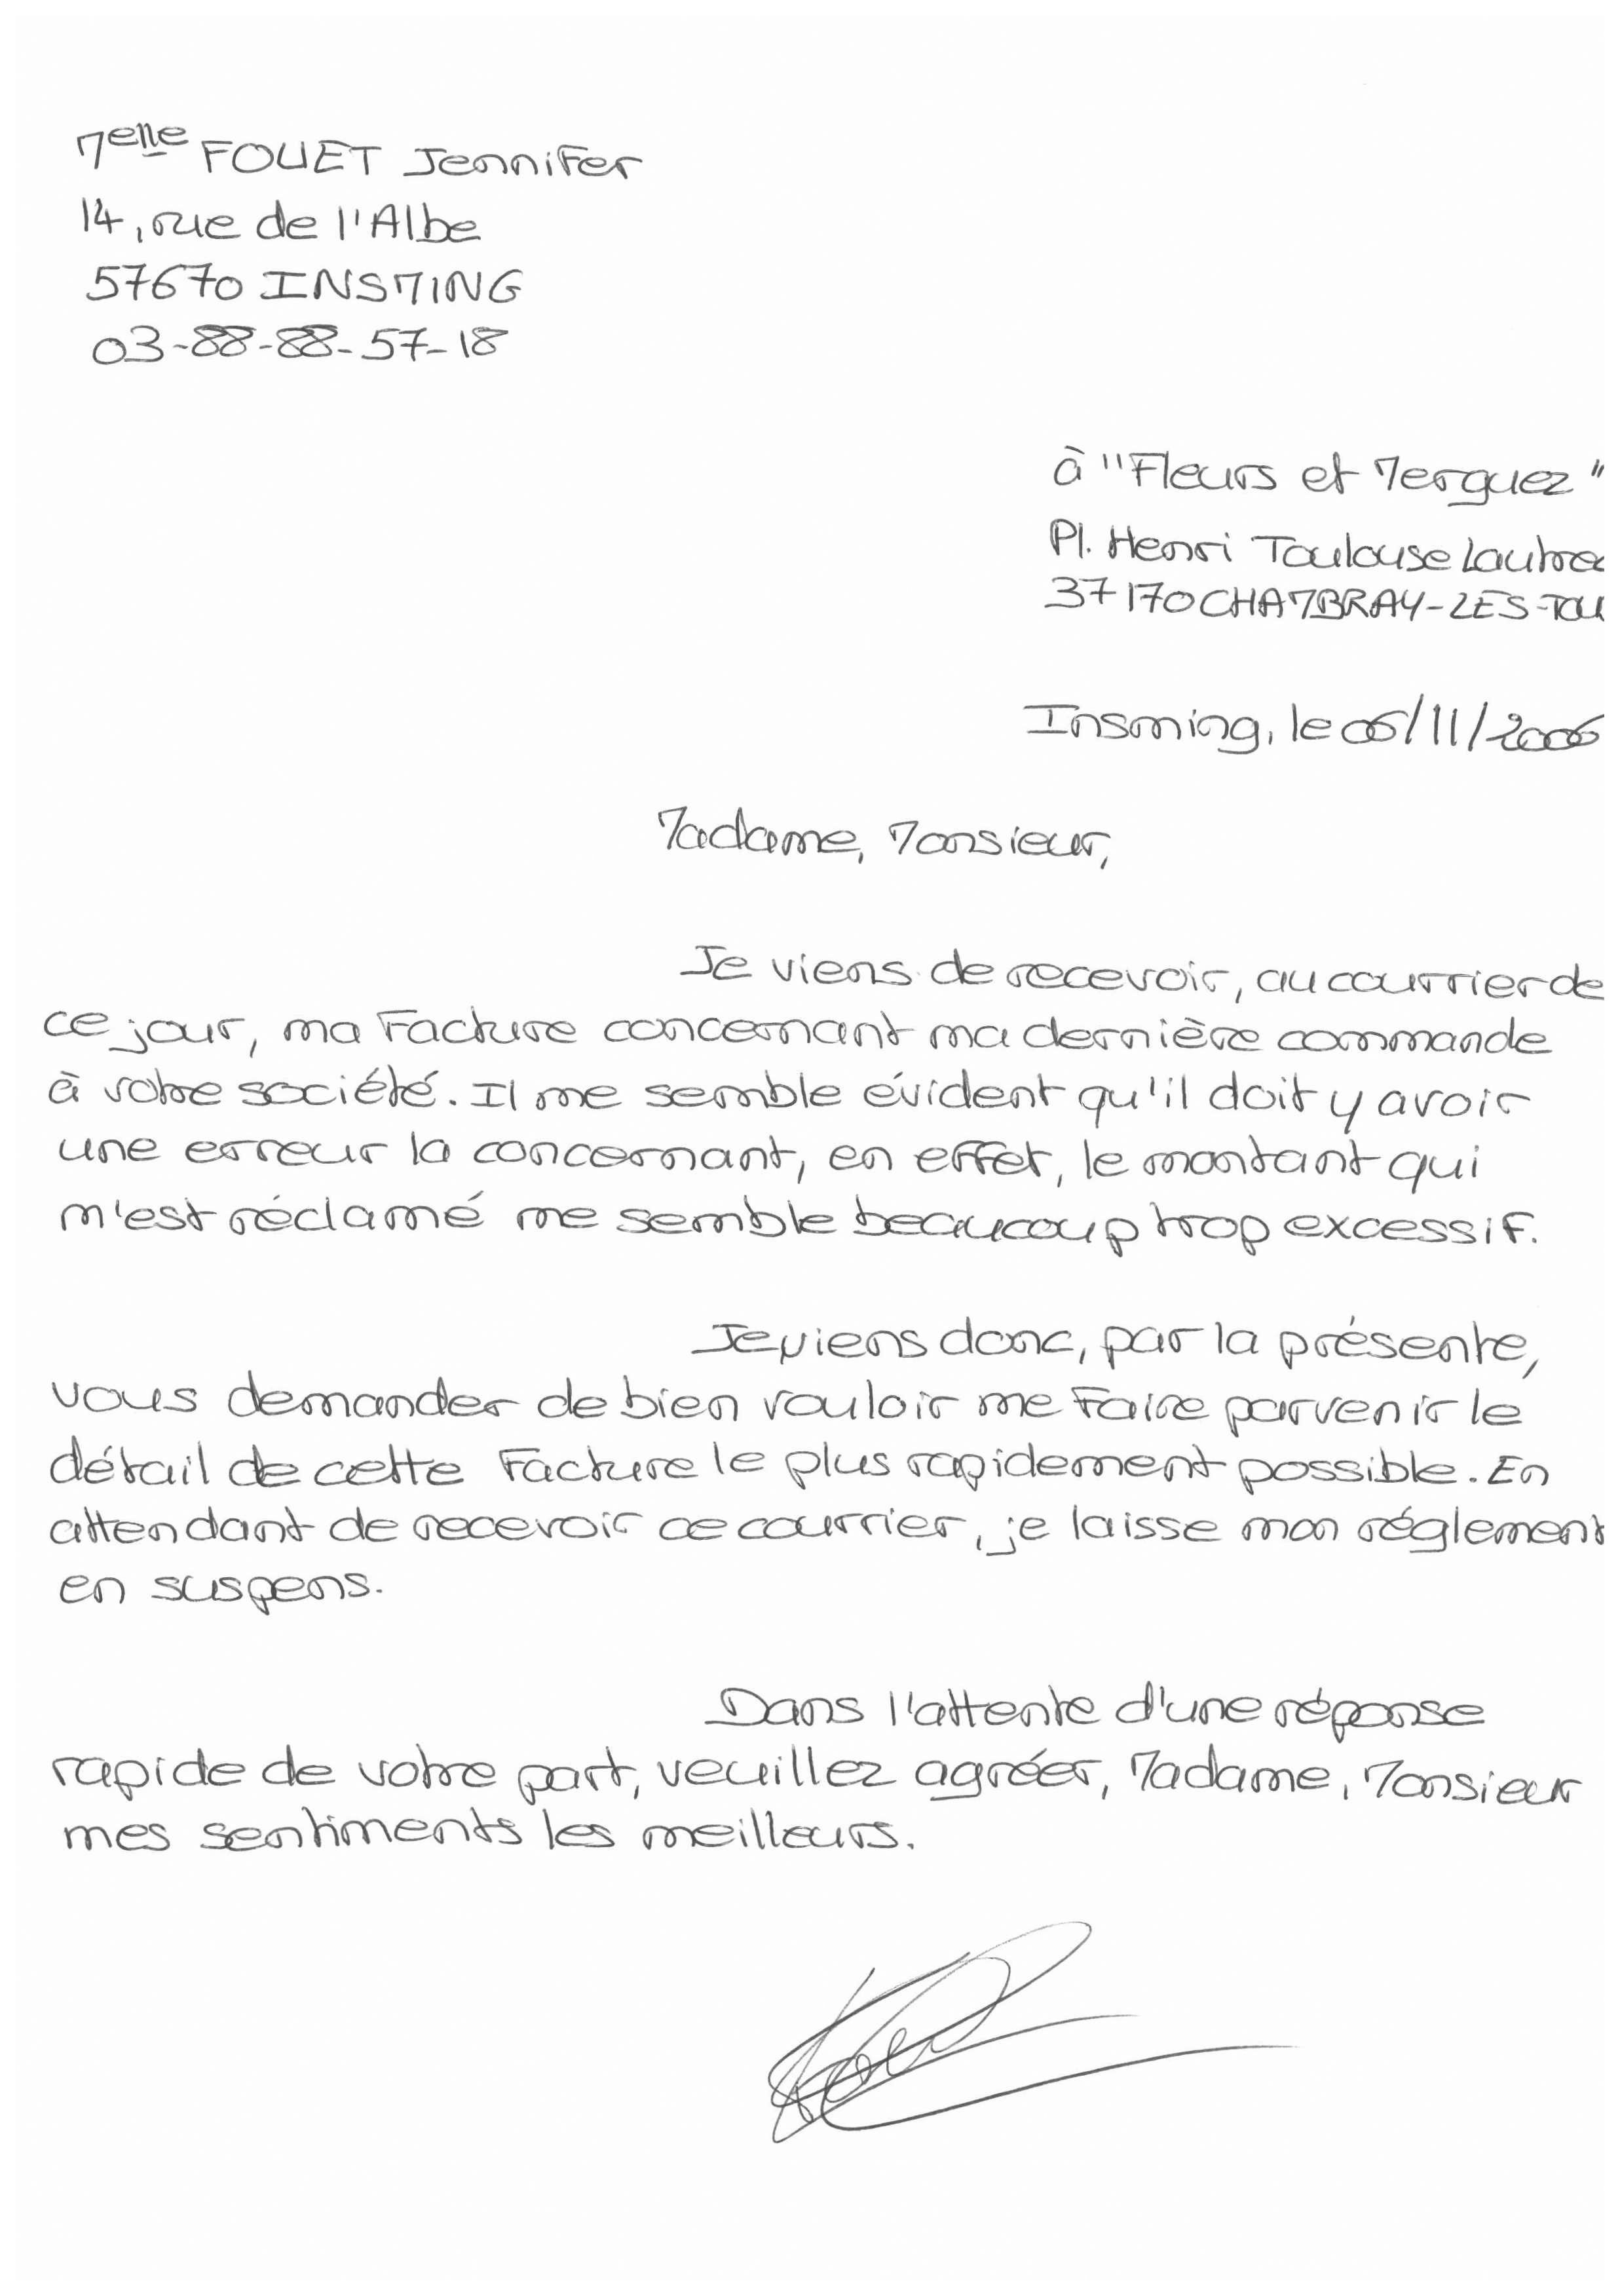 Melle FOUET Jennifer
14, rue de l'Albe
57670 INSMING
03-88-88-57-18
à "Fleurs et Merguez"
Pl. Henri Toulouse Lautrec
37170 CHAMBRAY-LES-TOU
Insming, le 06/11/2006
Madame, Monsieur,
Je viens de recevoir, au courrier de
ce jour, ma facture concernant ma dernière commande
à votre société. Il me semble évident qu'il doit y avoir
une erreur la concernant, en effet, le montant qui
m'est réclamé me semble beaucoup trop excessif.
Je viens donc, par la présente,
vous demander de bien vouloir me faire parvenir le
détail de cette facture le plus rapidement possible. En
attendant de recevoir ce courrier, je laisse mon réglement
en suspens.
Dans l'attente d'une réponse
rapide de votre part, veuillez agréer, Madame, Monsieur
mes sentiments les meilleurs.